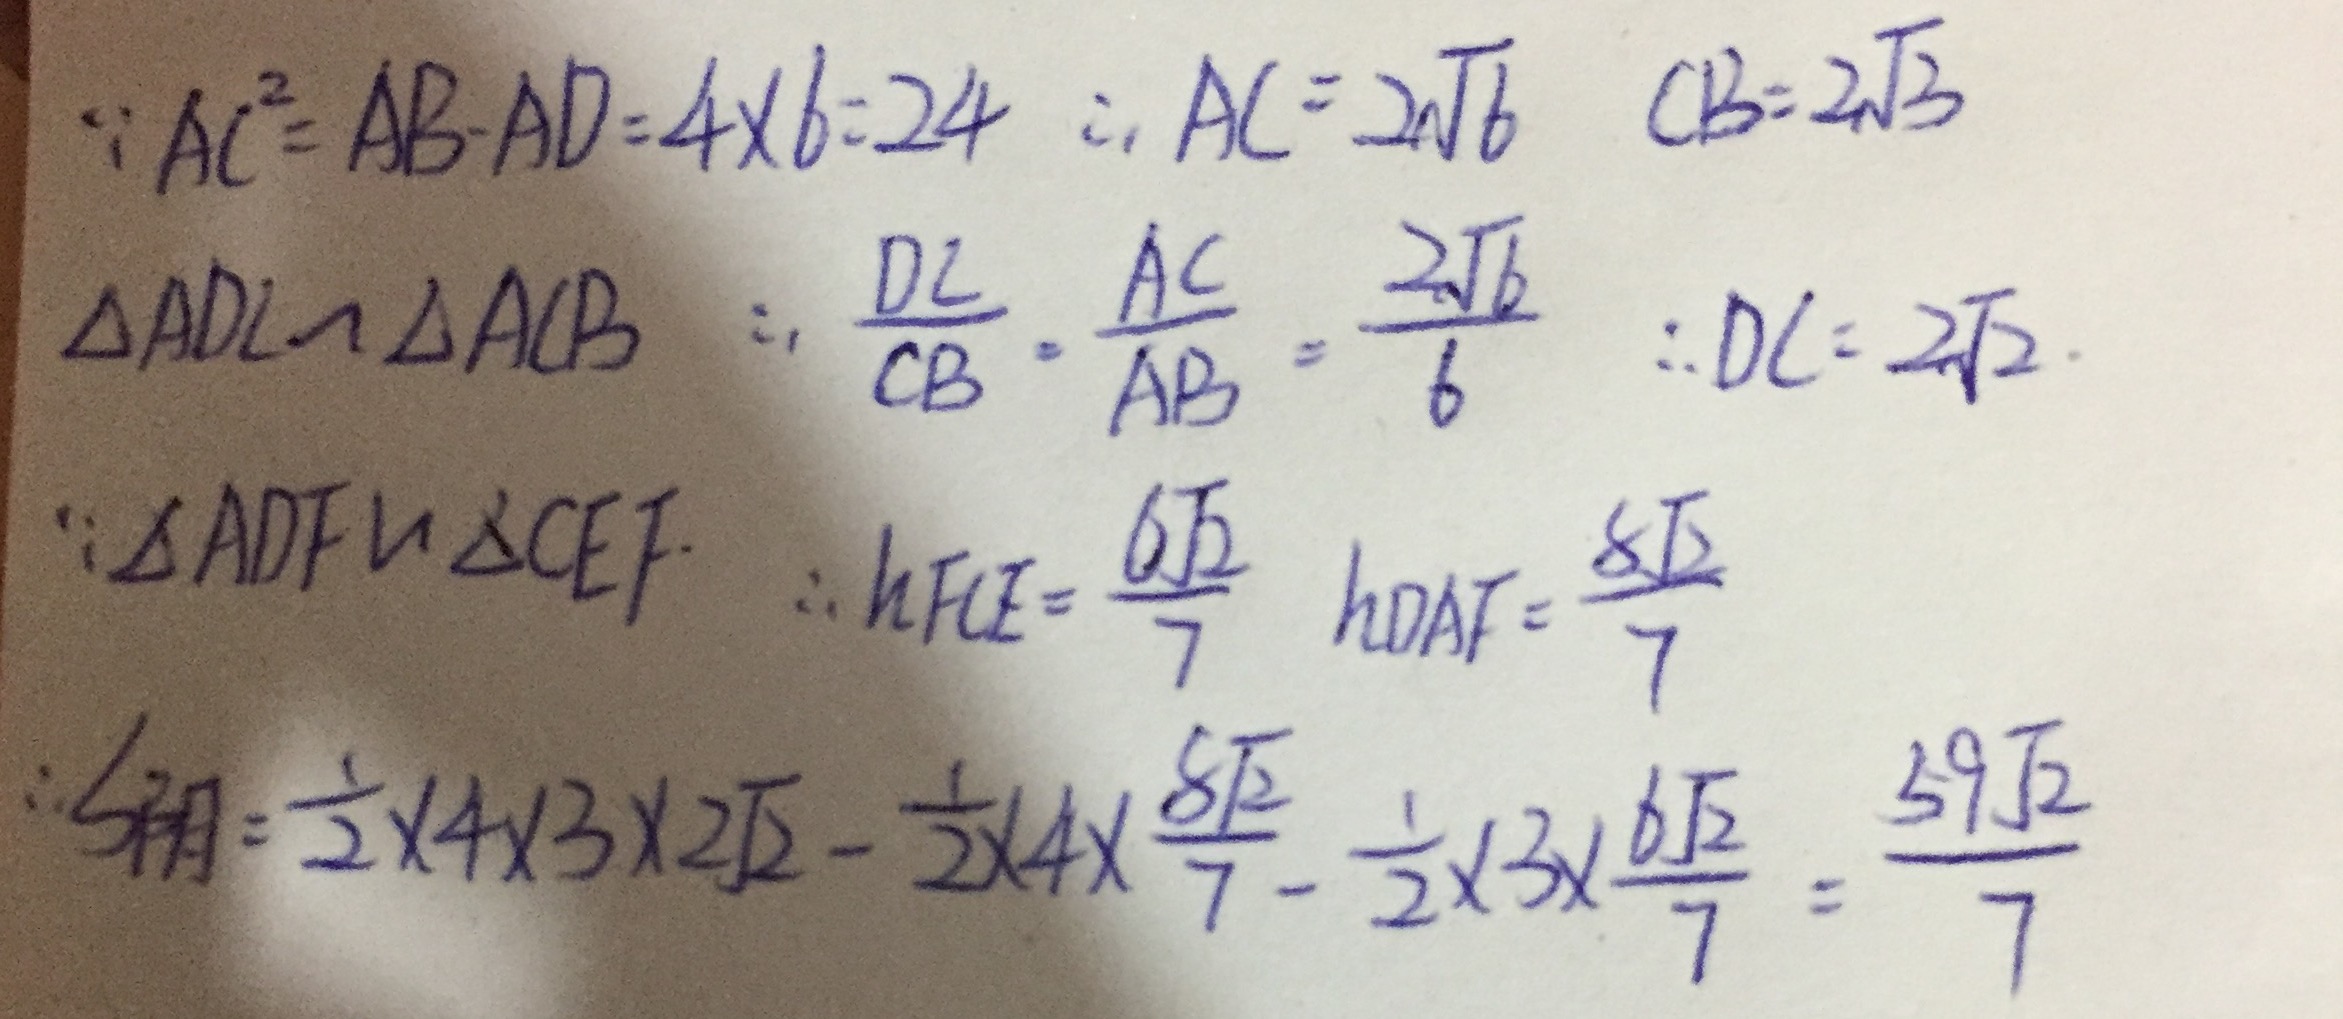 ∵ AC²= AB·AD=4×6=24 ∴ AC=2√6 CB=2√3
△ADC∽△ACB ∴ DC/CB = AC/AB = 2√6/6 ∴DC=2√2.
∵△ADF∽△CEF. ∴hFCE=6√2/7 hDAF=8√2/7
∴S阴=1/2×4×3×2√2-1/2×4×8√2/7-1/2×3×6√2/7=59√2/7